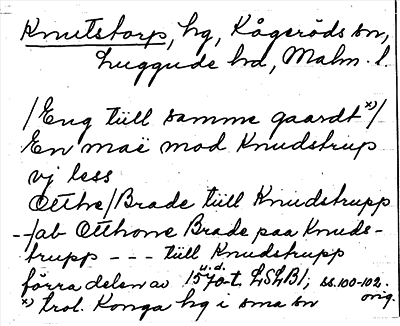 Knutstorp, hg, Kågeröds sn,
Luggude hd, Malm. l.
/Eng tiill samme gaardt x)/
En maë mod Knudstrup
vj less
Otthe/Brade tiill Knudstrupp
-/ab Otthone Brade paa Knuds-
trupp - - - tiill Knudstrupp
förra delen av 1570-t. u.d. LSLB1, ss. 100-102.
x) trol. Konga hg i sma sn orig.